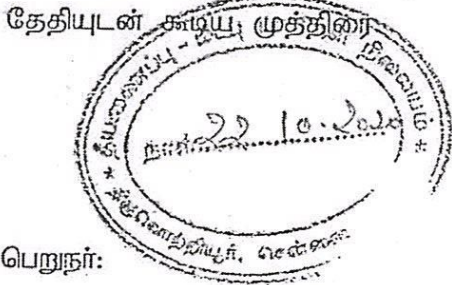 தேதியுடன் கூடிய முத்திரை
* தீயணைப்பு - நிலையம் *
நாள் 22 10.2020
திருவொற்றியூர், சென்னை
பெறுநர்: